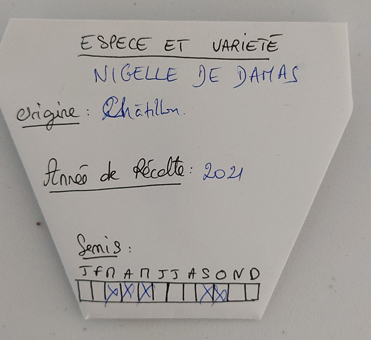 ESPECE ET VARIETÉ
NIGELLE DE DAMAS
Origine : Châtillon.
Année de Récolte : 2021
Semis :
J F M A M J J A S O N D
X X X X X